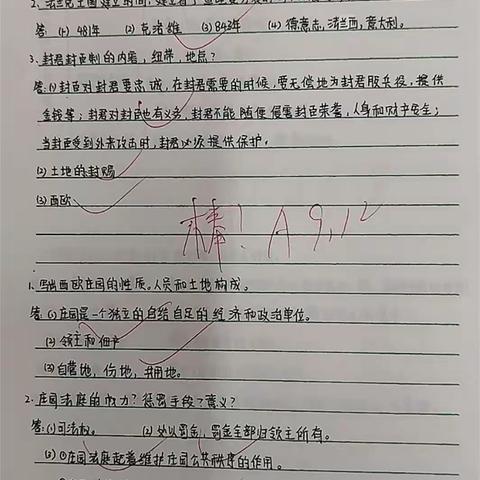 2、法兰克王国建立时间，建立者
答 (1) 481年 (2) 克洛维 (3) 843年 (4) 德意志，法兰西，意大利。
3、封君封臣制的内容，纽带，地点？
答：(1)封臣对封君要忠诚，在封君需要的时候，要无偿地为封君服兵役，提供
金钱等；封君对封臣也有义务，封君不能随便侵害封臣荣誉，人身和财产安全；
当封臣受到外来攻击时，封君必须提供保护。
(2)土地的封赐
(3)西欧
棒！A 9.12
1、写出西欧庄园的性质。人员和土地构成。
答：(1)庄园是一个独立的自给自足的经济和政治单位。
(2)领主和佃户
(3)自营地，份地，共用地。
2、庄园法庭的权力？惩罚手段？意义？
答：(1)司法权。 (2)处以罚金，罚金全部归领主所有。
(3)①庄园法庭起着维护庄园公共秩序的作用。